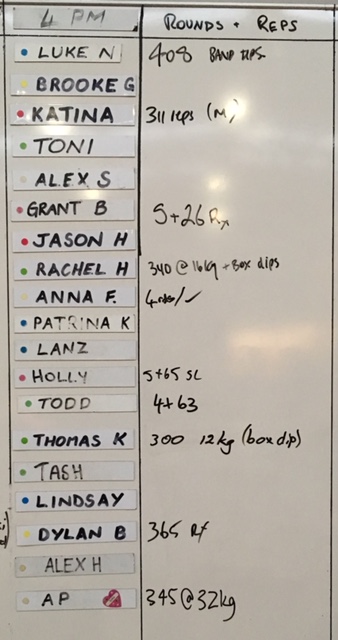 4 PM ROUNDS + REPS
LUKE N 408 BAND DIPS
BROOKE G
KATINA 311 reps (M)
TONI
ALEX S
GRANT B 5+26 Rx
JASON H
RACHEL H 340 @ 16kg + Box dips
ANNA F.
PATRINA K
LANZ
HOLLY 5+65 SL
TODD 4+63
THOMAS K 300 12kg (box dip)
TASH
LINDSAY
DYLAN B 365
ALEX H
AP 345@32kg